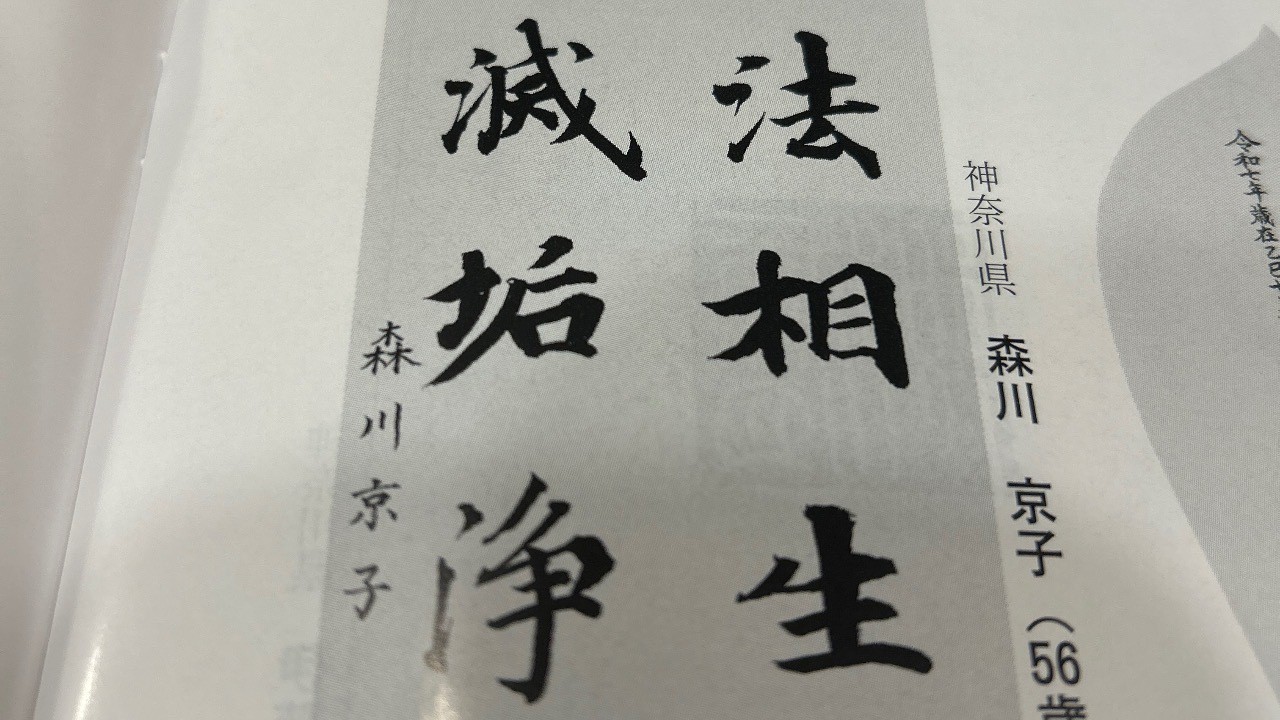 令和七年歳在乙巳
神奈川県 森川 京子 (56歳
法相生
滅垢浄
森川京子